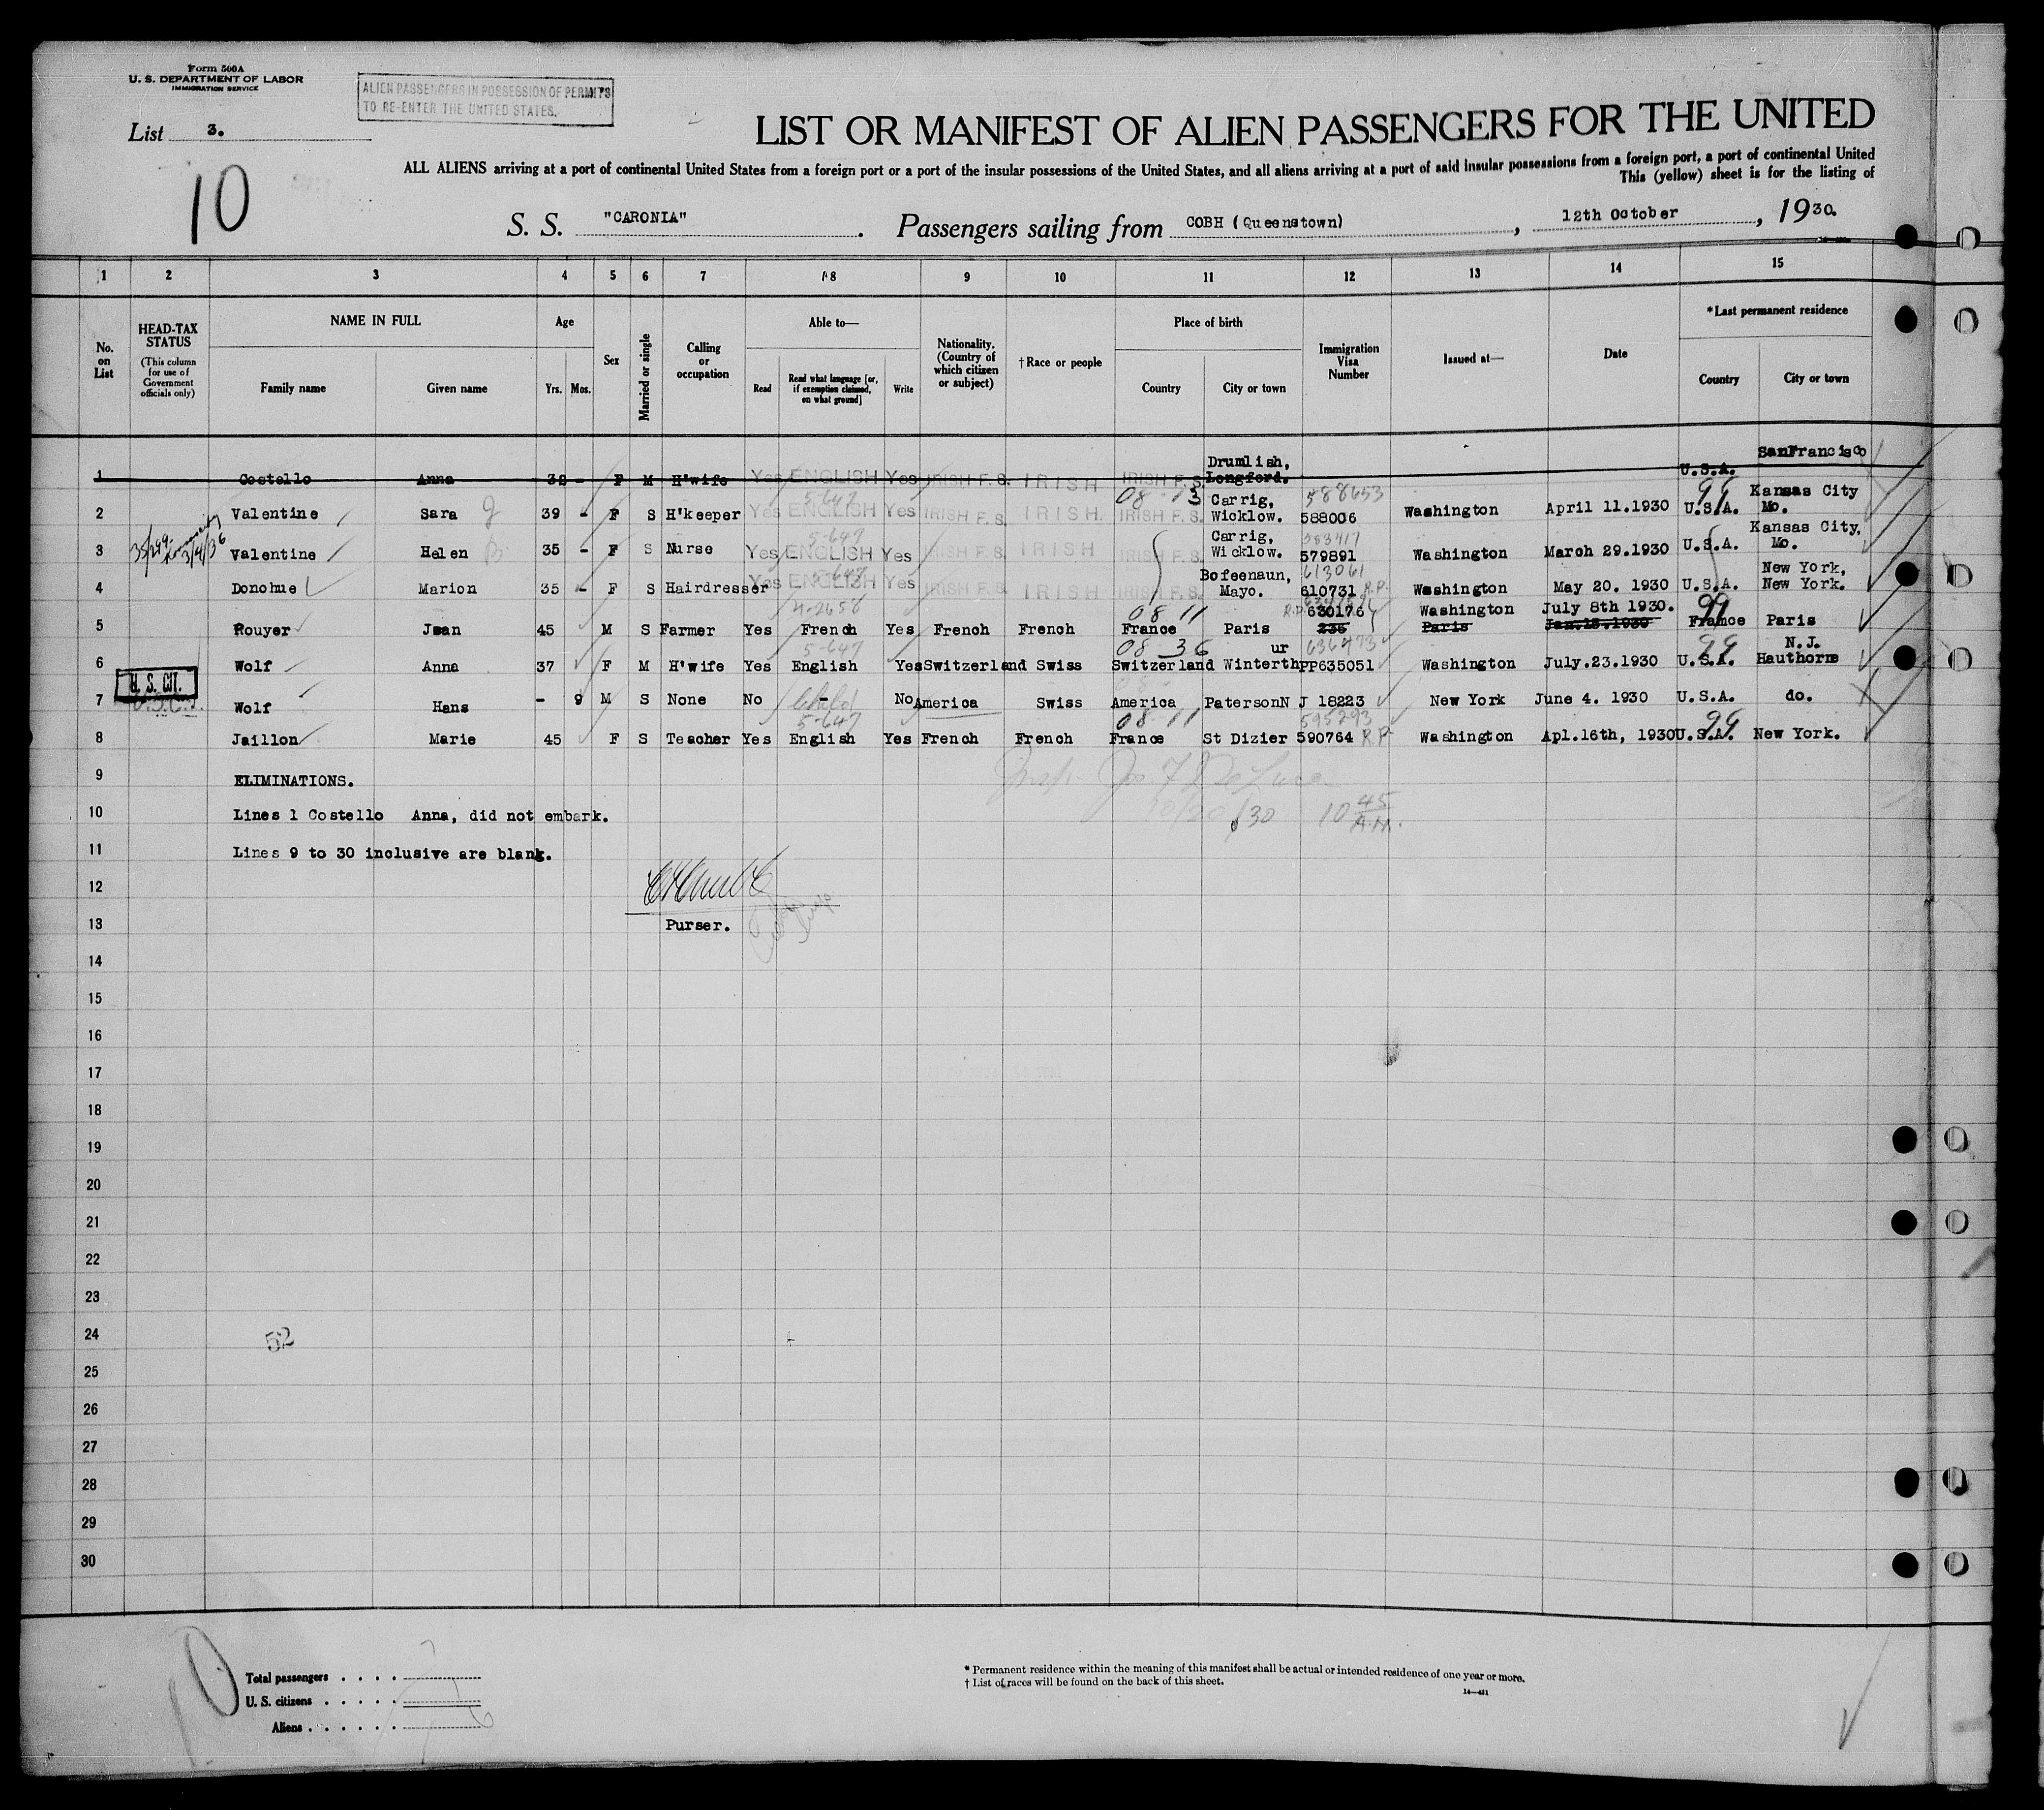 Form 500A
U. S. DEPARTMENT OF LABOR
IMMIGRATION SERVICE
ALIEN PASSENGERS IN POSSESSION OF PERMITS
TO RE-ENTER THE UNITED STATES.
List 3.
10
LIST OR MANIFEST OF ALIEN PASSENGERS FOR THE UNITED
ALL ALIENS arriving at a port of continental United States from a foreign port or a port of the insular possessions of the United States, and all aliens arriving at a port of said insular possessions from a foreign port, a port of continental United
This (yellow) sheet is for the listing of
S. S. "CARONIA". Passengers sailing from COBH (Queenstown), 12th October, 1930.
1 2 3 4 5 6 7 8 9 10 11 12 13 14 15
No. on List
HEAD-TAX STATUS (This column for use of Government officials only)
NAME IN FULL Family name Given name
Age Yrs. Mos.
Sex
Married or single
Calling or occupation
Able to— Read Read what language [or, if exemption claimed, on what ground] Write
Nationality. (Country of which citizen or subject)
†Race or people
Place of birth Country City or town
Immigration Visa Number
Issued at—
Date
*Last permanent residence Country City or town
1 Costello Anna 32 - F M H'wife Yes ENGLISH Yes IRISH F.S. IRISH IRISH F.S. Drumlish, Longford. U.S.A. SanFrancisco
5-647 08 13 588653 99
2 Valentine Sara J 39 - F S H'keeper Yes ENGLISH Yes IRISH F.S. IRISH. IRISH F.S. Carrig, Wicklow. 588006 Washington April 11.1930 U.S.A. Kansas City Mo.
35/299- 3/4/36
5-647 583417
3 Valentine Helen B 35 - F S Nurse Yes ENGLISH Yes IRISH F.S. IRISH IRISH F.S. Carrig, Wicklow. 579891 Washington March 29.1930 U.S.A. Kansas City, Mo.
5-647 613061
4 Donohue Marion 35 - F S Hairdresser Yes ENGLISH Yes IRISH F.S. IRISH IRISH F.S. Bofeenaun, Mayo. 610731 R.P. Washington May 20. 1930 U.S.A. New York, New York.
4-2658 08 11 R.P. 630176 Washington July 8th 1930. 99
5 Rouyer Jean 45 M S Farmer Yes French Yes French French France Paris 235 Paris Jan.18.1930 France Paris
5-647 08 36 636473 99
6 Wolf Anna 37 F M H'wife Yes English Yes Switzerland Swiss Switzerland Winterthur PP635051 Washington July.23.1930 U.S.A. N.J. Hawthorne
U. S. CIT.
U.S.C.
7 Wolf Hans - 9 M S None No - Child No America Swiss America PatersonN J 18223 New York June 4. 1930 U.S.A. do.
5-647 08 11 595293 99
8 Jaillon Marie 45 F S Teacher Yes English Yes French French France St Dizier 590764 R.P. Washington Apl.16th, 1930 U.S.A. New York.
9 ELIMINATIONS.
10 Lines 1 Costello Anna, did not embark.
Insp. Jos. F. DeLuca
10/20/30 10 45 A.M.
11 Lines 9 to 30 inclusive are blank.
12
13 Purser.
14
15
16
17
18
19
20
21
22
23
24
52
25
26
27
28
29
30
Total passengers . . . . 7
U. S. citizens . . . . . 1
Aliens . . . . . . 6
* Permanent residence within the meaning of this manifest shall be actual or intended residence of one year or more.
† List of races will be found on the back of this sheet.
14—431